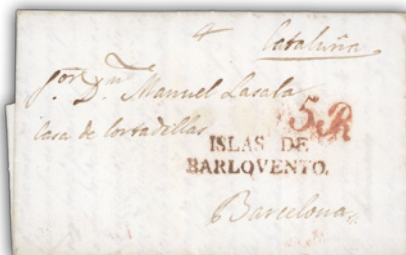 4 Cataluña
por Dn. Manuel Lasala
casa de Cortadillas
5R
ISLAS DE
BARLOVENTO.
Barcelona